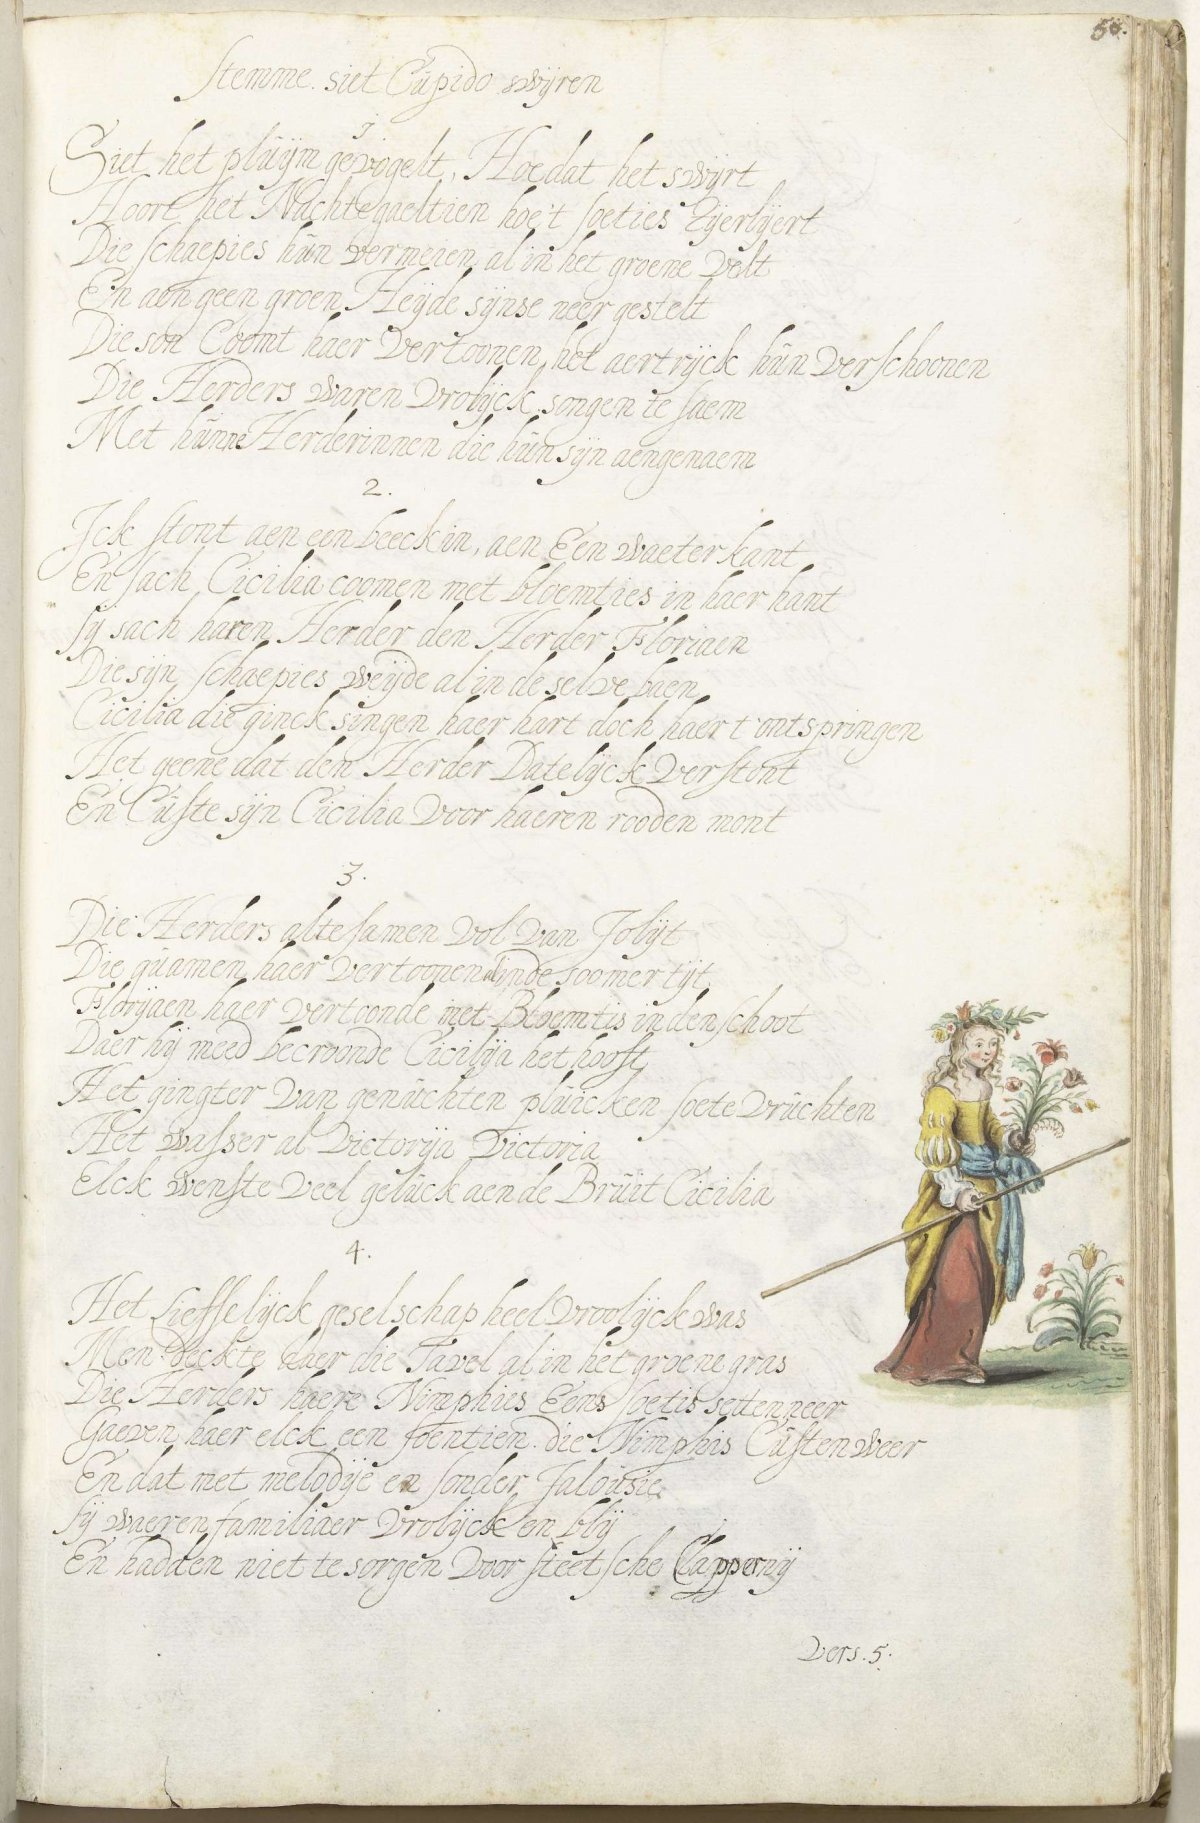 50.
Stemme. siet Cupido swijren
1
Siet het pluijm gevogelt, Hoe dat het swijrt
Hoort het Nachtegaeltien hoe't soeties Tijerlijert
Die schaepies hun vermeien al in het groene velt
En aen geen groen Heijde sijnse neer gestelt
Die son Coomt haer vertoonen, het aertrijck hun verschoonen
Die Herders waren vrolijck songen te saem
Met hunne Herderinnen die hun sijn aengenaem
2.
Ick stont aen een beeckin, aen Een waeter kant
En sach Cicilia coomen met bloemties in haer hant
sij sach haren Herder den Herder Floriaen
Die sijn schaepies weijde al in de selve baen
Cicilia die ginck singen haer hart doch haer t'ontspringen
Het geene dat den Herder Datelijck verstont
En Custe sijn Cicilia voor haeren rooden mont
3.
Die Herders altesamen vol van Jolijt
Die quamen haer vertoonen inde soomertijt
Florijaen haer vertoonde met Bloemtis in den schoot
Daer hij meed becroonde Cicilija het hooft
Het gingter van genuchten pluicken soete vruchten
Het wasser al victorija victoria
Elck wenste veel geluck aen de Bruit Cicilia
4.
Het Lieffelijck geselschap heel vroolijck was
Men deckte daer die Tavel al in het groene gras
Die Herders haere Nimphies Eens soetis setten neer
Gaeven haer elck een soentien. die Nimphis Custen weer
En dat met melodije en sonder Jalousie
sij waeren familiaer vrolijck en blij
En hadden niet te sorgen voor steetsche Clappernij
Vers. 5.